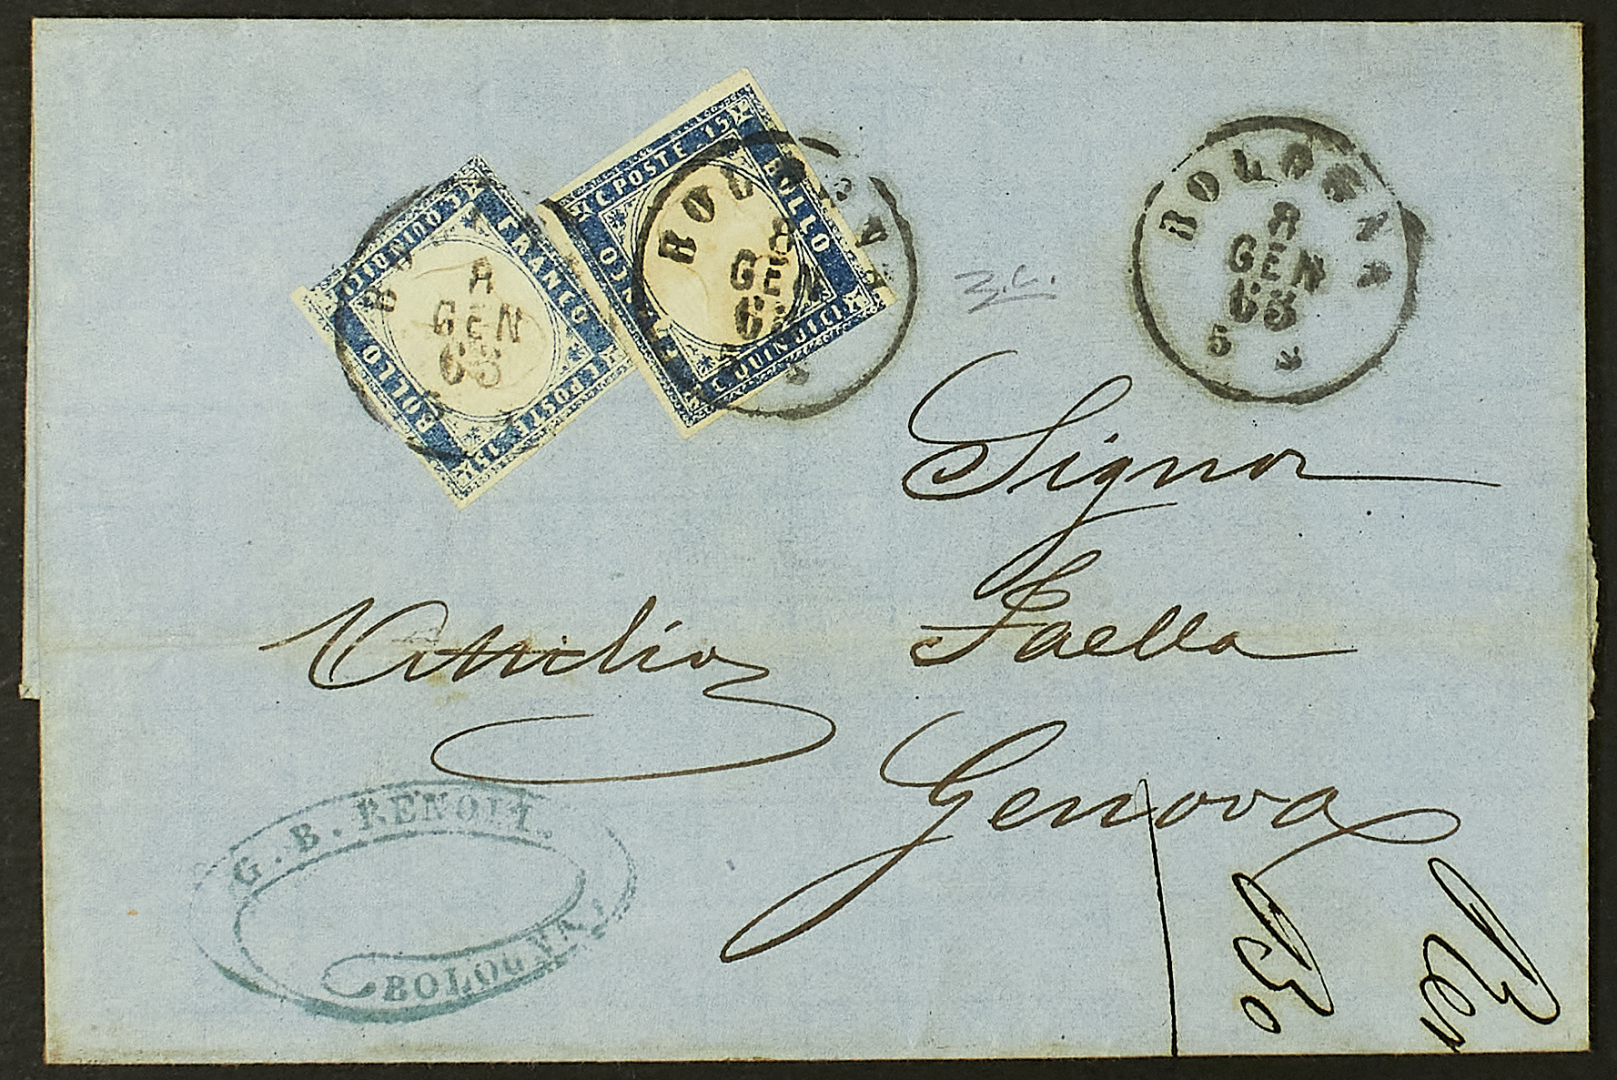 C. POSTE 15
BOLLO
C. QUINDICI
FRANCO
C. QUINDICI
FRANCO
C. POSTE 15
BOLLO
BOLOGNA
8
GEN
63
8
GEN
63
BOLOGNA
8
GEN
63
5 S
Signor
Faella
Genova
G. B. BENOLI.
BOLOGNA
Ben
Bo